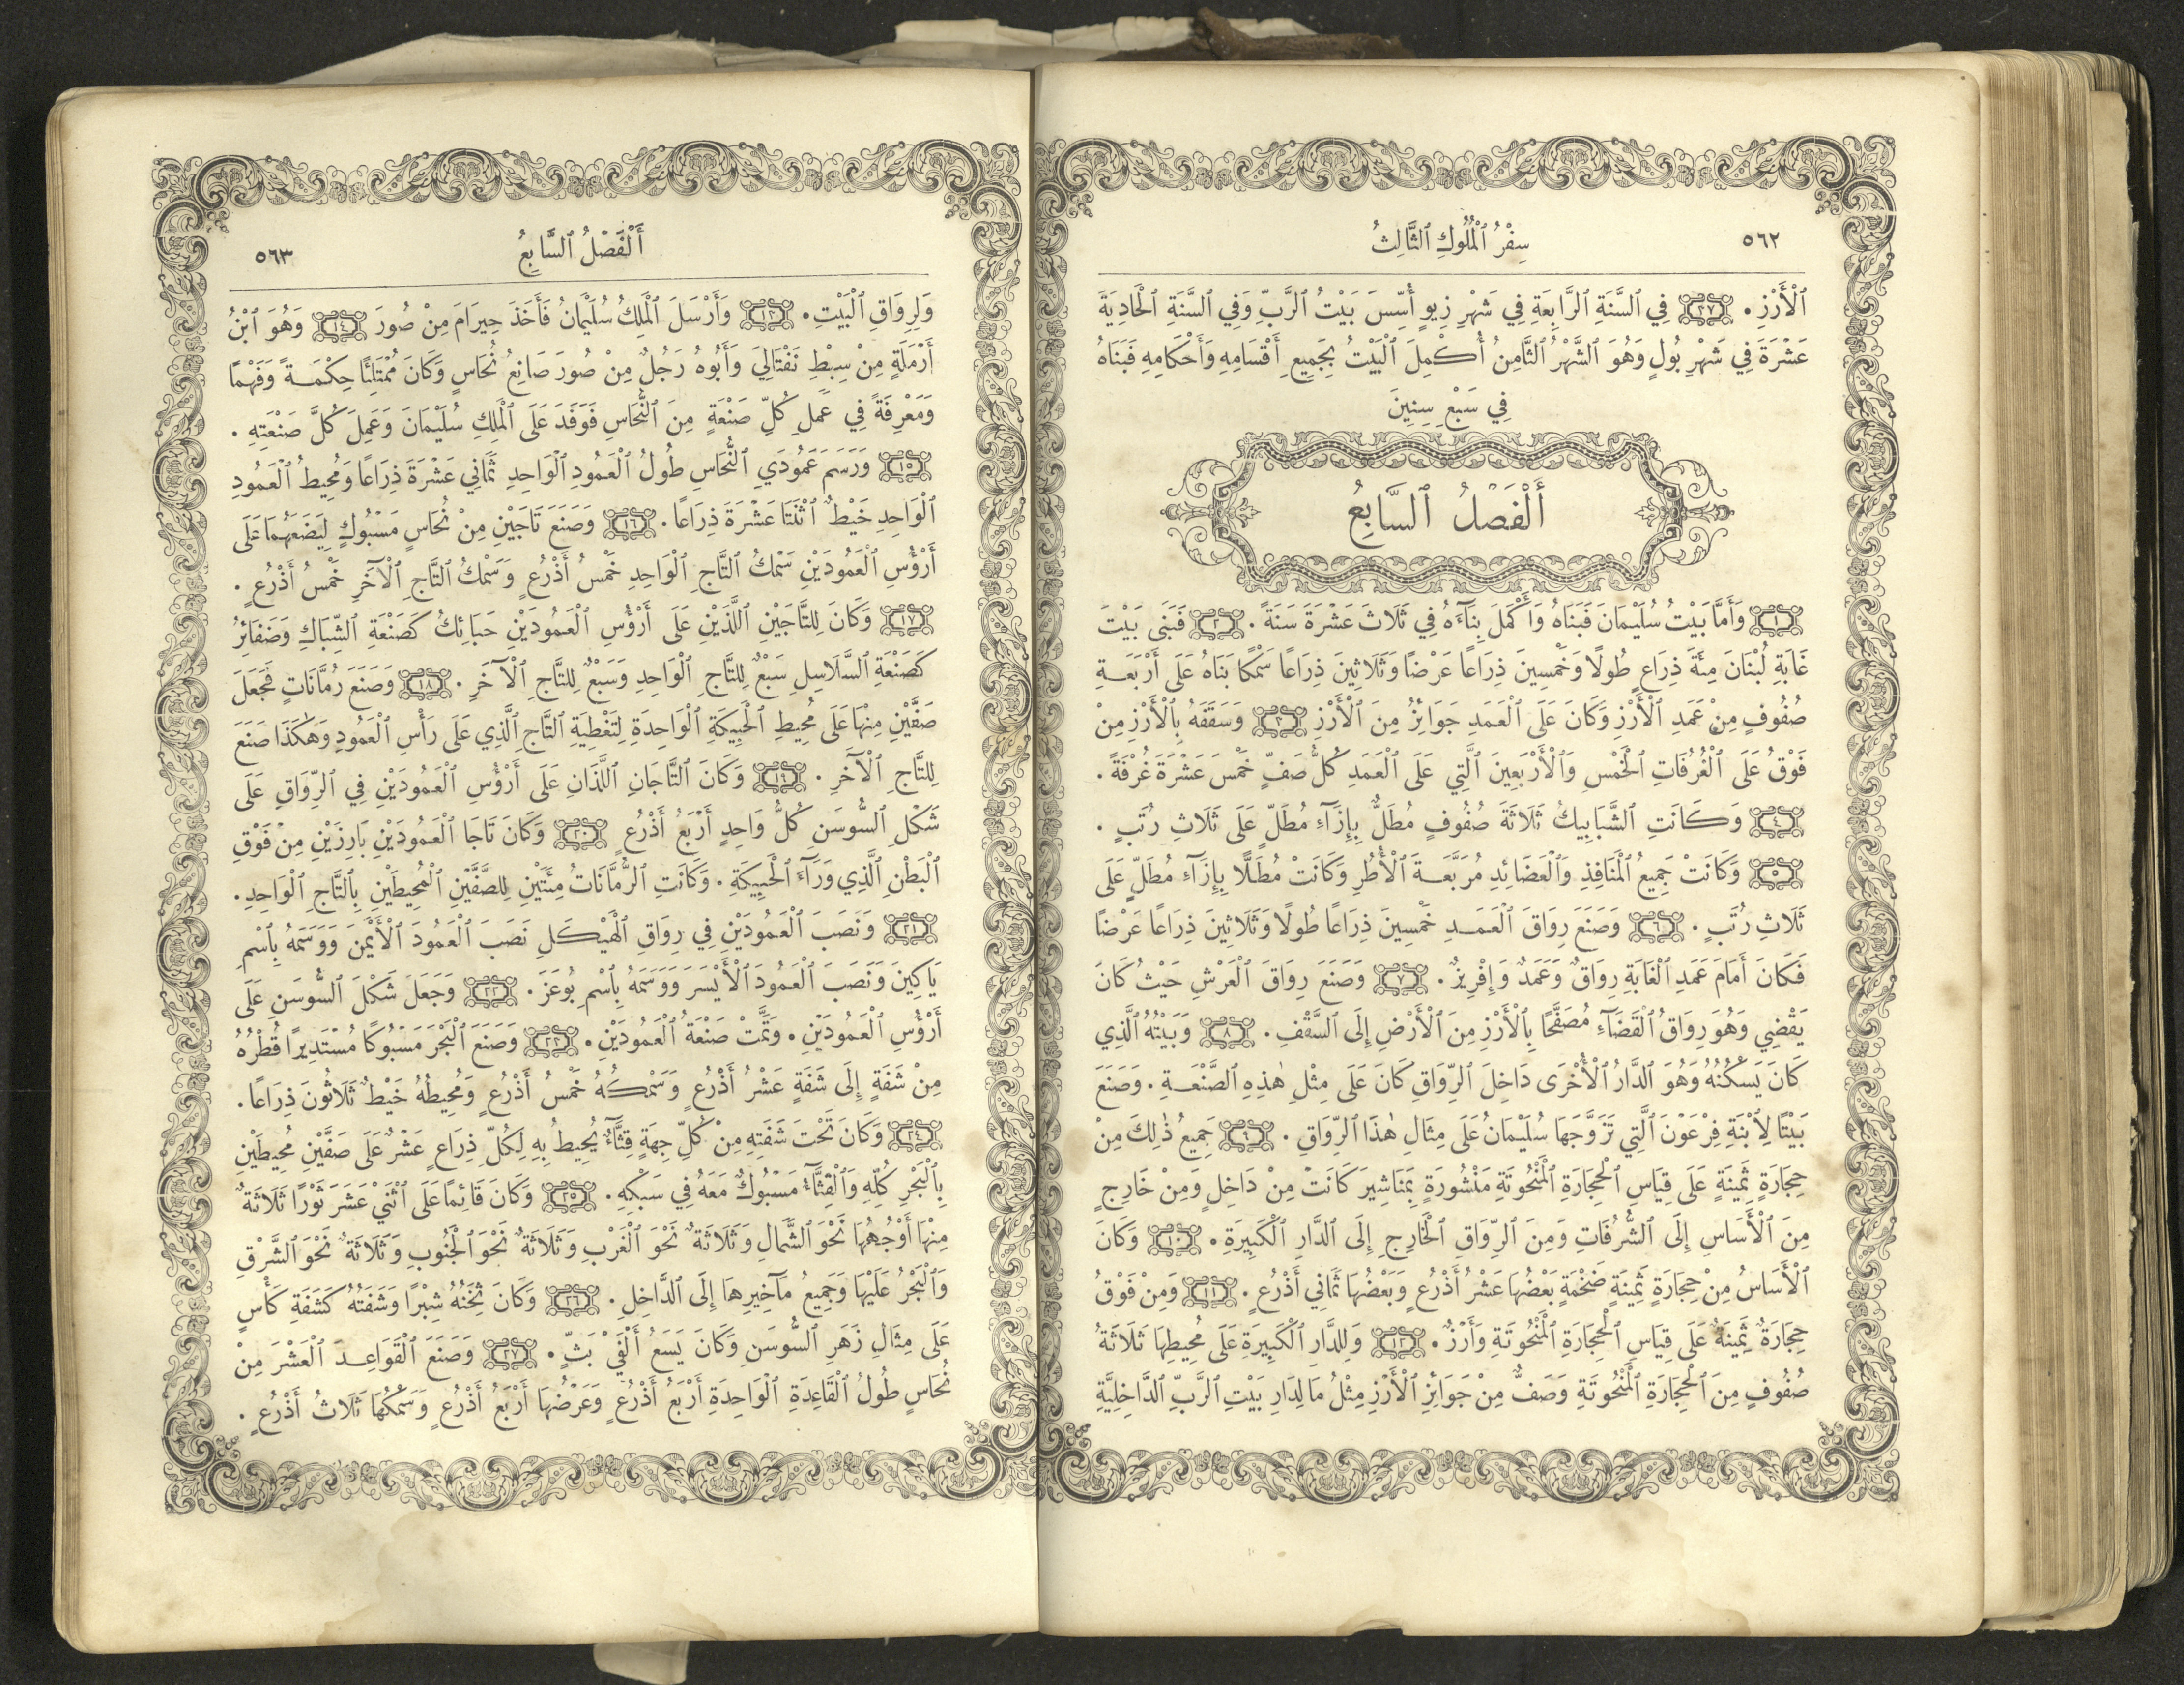 ٥٦٢
سِفْرُ ٱلْمُلُوكِ ٱلثَّالِثُ
ٱلْأَرْزِ. ٣٧ فِي ٱلسَّنَةِ ٱلرَّابِعَةِ فِي شَهْرِ زِيوٍ أُسِّسَ بَيْتُ ٱلرَّبِّ وَفِي ٱلسَّنَةِ ٱلْحَادِيَةَ
عَشْرَةَ فِي شَهْرِ بُولٍ وَهُوَ ٱلشَّهْرُ ٱلثَّامِنُ أُكْمِلَ ٱلْبَيْتُ بِجَمِيعِ أَقْسَامِهِ وَأَحْكَامِهِ فَبَنَاهُ
فِي سَبْعِ سِنِينَ
أَلْفَصْلُ ٱلسَّابِعُ
١ وَأَمَّا بَيْتُ سُلَيْمَانَ فَبَنَاهُ وَأَكْمَلَ بِنَآءَهُ فِي ثَلَاثَ عَشْرَةَ سَنَةً. ٢ فَبَنَى بَيْتَ
غَابَةِ لُبْنَانَ مِئَةَ ذِرَاعٍ طُولًا وَخَمْسِينَ ذِرَاعًا عَرْضًا وَثَلَاثِينَ ذِرَاعًا سَمْكًا بَنَاهُ عَلَى أَرْبَعَةِ
صُفُوفٍ مِنْ عَمَدِ ٱلْأَرْزِ وَكَانَ عَلَى ٱلْعَمَدِ جَوَائِزُ مِنَ ٱلْأَرْزِ ٣ وَسَقَفَهُ بِٱلْأَرْزِ مِنْ
فَوْقُ عَلَى ٱلْغُرُفَاتِ ٱلْخَمْسِ وَٱلْأَرْبَعِينَ ٱلَّتِي عَلَى ٱلْعَمَدِ كُلُّ صَفٍّ خَمْسَ عَشْرَةَ غُرْفَةً.
٤ وَكَانَتِ ٱلشَّبَابِيكُ ثَلَاثَةَ صُفُوفٍ مُطَلٌّ بِإِزَآءِ مُطَلٍّ عَلَى ثَلَاثِ رُتَبٍ.
٥ وَكَانَتْ جَمِيعُ ٱلْمَنَافِذِ وَٱلْعَضَائِدِ مُرَبَّعَةَ ٱلْأُطُرِ وَكَانَتْ مُطَلًّا بِإِزَآءِ مُطَلٍّ عَلَى
ثَلَاثِ رُتَبٍ. ٦ وَصَنَعَ رِوَاقَ ٱلْعَمَدِ خَمْسِينَ ذِرَاعًا طُولًا وَثَلَاثِينَ ذِرَاعًا عَرْضًا
فَكَانَ أَمَامَ عَمَدِ ٱلْغَابَةِ رِوَاقٌ وَعَمَدٌ وَإِفْرِيزٌ. ٧ وَصَنَعَ رِوَاقَ ٱلْعَرْشِ حَيْثُ كَانَ
يَقْضِي وَهُوَ رِوَاقُ ٱلْقَضَآءِ مُصَفَّحًا بِٱلْأَرْزِ مِنَ ٱلْأَرْضِ إِلَى ٱلسَّقْفِ. ٨ وَبَيْتُهُ ٱلَّذِي
كَانَ يَسْكُنُهُ وَهُوَ ٱلدَّارُ ٱلْأُخْرَى دَاخِلَ ٱلرِّوَاقِ كَانَ عَلَى مِثْلِ هٰذِهِ ٱلصَّنْعَةِ. وَصَنَعَ
بَيْتًا لِٱبْنَةِ فِرْعَوْنَ ٱلَّتِي تَزَوَّجَهَا سُلَيْمَانُ عَلَى مِثَالِ هٰذَا ٱلرِّوَاقِ. ٩ جَمِيعُ ذٰلِكَ مِنْ
حِجَارَةٍ ثَمِينَةٍ عَلَى قِيَاسِ ٱلْحِجَارَةِ ٱلْمَنْحُوتَةِ مَنْشُورَةٍ بِمَنَاشِيرَ كَانَتْ مِنْ دَاخِلٍ وَمِنْ خَارِجٍ
مِنَ ٱلْأَسَاسِ إِلَى ٱلشُّرُفَاتِ وَمِنَ ٱلرِّوَاقِ ٱلْخَارِجِ إِلَى ٱلدَّارِ ٱلْكَبِيرَةِ. ١٠ وَكَانَ
ٱلْأَسَاسُ مِنْ حِجَارَةٍ ثَمِينَةٍ ضَخْمَةٍ بَعْضُهَا عَشْرُ أَذْرُعٍ وَبَعْضُهَا ثَمَانِي أَذْرُعٍ. ١١ وَمِنْ فَوْقُ
حِجَارَةٌ ثَمِينَةٌ عَلَى قِيَاسِ ٱلْحِجَارَةِ ٱلْمَنْحُوتَةِ وَأَرْزٌ. ١٢ وَلِلدَّارِ ٱلْكَبِيرَةِ عَلَى مُحِيطِهَا ثَلَاثَةُ
صُفُوفٍ مِنَ ٱلْحِجَارَةِ ٱلْمَنْحُوتَةِ وَصَفٌّ مِنْ جَوَائِزِ ٱلْأَرْزِ مِثْلُ مَا لِدَارِ بَيْتِ ٱلرَّبِّ ٱلدَّاخِلِيَّةِ
أَلْفَصْلُ ٱلسَّابِعُ
٥٦٣
وَلِرِوَاقِ ٱلْبَيْتِ. ١٣ وَأَرْسَلَ ٱلْمَلِكُ سُلَيْمَانُ فَأَخَذَ حِيرَامَ مِنْ صُورَ ١٤ وَهُوَ ٱبْنُ
أَرْمَلَةٍ مِنْ سِبْطِ نَفْتَالِيَ وَأَبُوهُ رَجُلٌ مِنْ صُورَ صَانِعُ نُحَاسٍ وَكَانَ مُمْتَلِئًا حِكْمَةً وَفَهْمًا
وَمَعْرِفَةً فِي عَمَلِ كُلِّ صَنْعَةٍ مِنَ ٱلنُّحَاسِ فَوَفَدَ عَلَى ٱلْمَلِكِ سُلَيْمَانَ وَعَمِلَ كُلَّ صَنْعَتِهِ.
١٥ وَرَسَمَ عَمُودَيِ ٱلنُّحَاسِ طُولُ ٱلْعَمُودِ ٱلْوَاحِدِ ثَمَانِي عَشْرَةَ ذِرَاعًا وَمُحِيطُ ٱلْعَمُودِ
ٱلْوَاحِدِ خَيْطٌ ٱثْنَتَا عَشْرَةَ ذِرَاعًا. ١٦ وَصَنَعَ تَاجَيْنِ مِنْ نُحَاسٍ مَسْبُوكٍ لِيَضَعَهُمَا عَلَى
أَرْؤُسِ ٱلْعَمُودَيْنِ سَمْكُ ٱلتَّاجِ ٱلْوَاحِدِ خَمْسُ أَذْرُعٍ وَسَمْكُ ٱلتَّاجِ ٱلْآخَرِ خَمْسُ أَذْرُعٍ.
١٧ وَكَانَ لِلتَّاجَيْنِ ٱللَّذَيْنِ عَلَى أَرْؤُسِ ٱلْعَمُودَيْنِ حَبَائِكُ كَصَنْعَةِ ٱلشِّبَاكِ وَضَفَائِرُ
كَصَنْعَةِ ٱلسَّلَاسِلِ سَبْعٌ لِلتَّاجِ ٱلْوَاحِدِ وَسَبْعٌ لِلتَّاجِ ٱلْآخَرِ. ١٨ وَصَنَعَ رُمَّانَاتٍ فَجَعَلَ
صَفَّيْنِ مِنْهَا عَلَى مُحِيطِ ٱلْحَبِيكَةِ ٱلْوَاحِدَةِ لِتَغْطِيَةِ ٱلتَّاجِ ٱلَّذِي عَلَى رَأْسِ ٱلْعَمُودِ وَهٰكَذَا صَنَعَ
لِلتَّاجِ ٱلْآخَرِ. ١٩ وَكَانَ ٱلتَّاجَانِ ٱللَّذَانِ عَلَى أَرْؤُسِ ٱلْعَمُودَيْنِ فِي ٱلرِّوَاقِ عَلَى
شَكْلِ ٱلسُّوسَنِ كُلُّ وَاحِدٍ أَرْبَعُ أَذْرُعٍ ٢٠ وَكَانَ تَاجَا ٱلْعَمُودَيْنِ بَارِزَيْنِ مِنْ فَوْقِ
ٱلْبَطْنِ ٱلَّذِي وَرَآءَ ٱلْحَبِيكَةِ. وَكَانَتِ ٱلرُّمَّانَاتُ مِئَتَيْنِ لِلصَّفَّيْنِ ٱلْمُحِيطَيْنِ بِٱلتَّاجِ ٱلْوَاحِدِ.
٢١ وَنَصَبَ ٱلْعَمُودَيْنِ فِي رِوَاقِ ٱلْهَيْكَلِ نَصَبَ ٱلْعَمُودَ ٱلْأَيْمَنَ وَوَسَمَهُ بِٱسْمِ
يَاكِينَ وَنَصَبَ ٱلْعَمُودَ ٱلْأَيْسَرَ وَوَسَمَهُ بِٱسْمِ بُوعَزَ. ٢٢ وَجَعَلَ شَكْلَ ٱلسُّوسَنِ عَلَى
أَرْؤُسِ ٱلْعَمُودَيْنِ. وَتَمَّتْ صَنْعَةُ ٱلْعَمُودَيْنِ. ٢٣ وَصَنَعَ ٱلْبَحْرَ مَسْبُوكًا مُسْتَدِيرًا قُطْرُهُ
مِنْ شَفَةٍ إِلَى شَفَةٍ عَشْرُ أَذْرُعٍ وَسَمْكُهُ خَمْسُ أَذْرُعٍ وَمُحِيطُهُ خَيْطٌ ثَلَاثُونَ ذِرَاعًا.
٢٤ وَكَانَ تَحْتَ شَفَتِهِ مِنْ كُلِّ جِهَةٍ قِثَّآءٌ يُحِيطُ بِهِ لِكُلِّ ذِرَاعٍ عَشْرٌ عَلَى صَفَّيْنِ مُحِيطَيْنِ
بِٱلْبَحْرِ كُلِّهِ وَٱلْقِثَّآءُ مَسْبُوكٌ مَعَهُ فِي سَبْكِهِ. ٢٥ وَكَانَ قَائِمًا عَلَى ٱثْنَيْ عَشَرَ ثَوْرًا ثَلَاثَةٌ
مِنْهَا أَوْجُهُهَا نَحْوَ ٱلشَّمَالِ وَثَلَاثَةٌ نَحْوَ ٱلْغَرْبِ وَثَلَاثَةٌ نَحْوَ ٱلْجَنُوبِ وَثَلَاثَةٌ نَحْوَ ٱلشَّرْقِ
وَٱلْبَحْرُ عَلَيْهَا وَجَمِيعُ مَآخِيرِهَا إِلَى ٱلدَّاخِلِ. ٢٦ وَكَانَ ثِخَنُهُ شِبْرًا وَشَفَتُهُ كَشَفَةِ كَأْسٍ
عَلَى مِثَالِ زَهَرِ ٱلسُّوسَنِ وَكَانَ يَسَعُ أَلْفَيْ بَثٍّ. ٢٧ وَصَنَعَ ٱلْقَوَاعِدَ ٱلْعَشْرَ مِنْ
نُحَاسٍ طُولُ ٱلْقَاعِدَةِ ٱلْوَاحِدَةِ أَرْبَعُ أَذْرُعٍ وَعَرْضُهَا أَرْبَعُ أَذْرُعٍ وَسَمْكُهَا ثَلَاثُ أَذْرُعٍ.